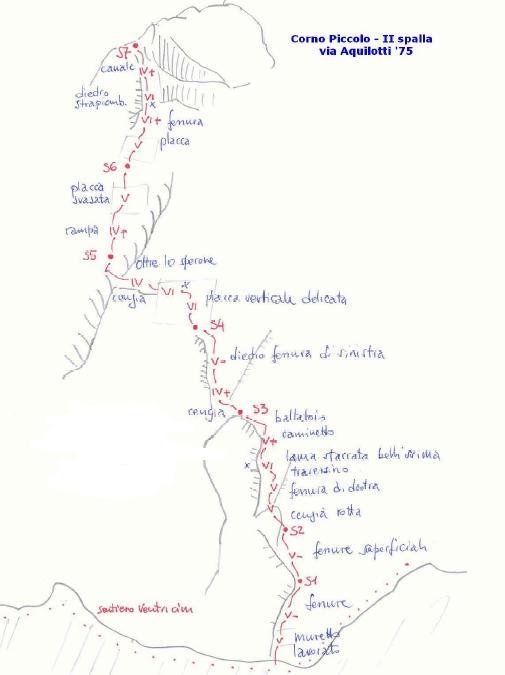 Corno Piccolo - II spalla
via Aquilotti '75
S7
canale
IV+
diedro
strapiomb.
VI
x
VI+
fenura
V
placca
S6
placca
svasata
V
rampa
IV+
S5
oltre lo sperone
IV
cengia
VI
x
VI
placca verticale delicata
S4
V-
diedro fenura di sinistra
IV+
cengia
S3
ballatoio
V+
caminetto
lama staccata bellissima
x
VI
traversino
V
fenura di destra
V
cengia rotta
S2
V-
fenure superficiali
S1
fenure
V-
sentiero Ventricini
V
muretto
lavorato